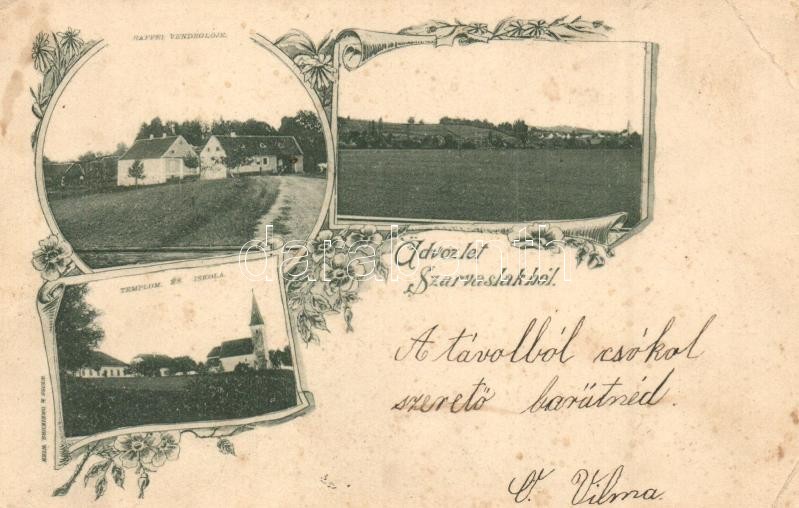 RAFFEL VENDÉGLŐJE.
Üdvözlet
Szarvaslakból.
TEMPLOM. ÉS ISKOLA.
A távolból csókol
szerető barátnéd.
V. Vilma.